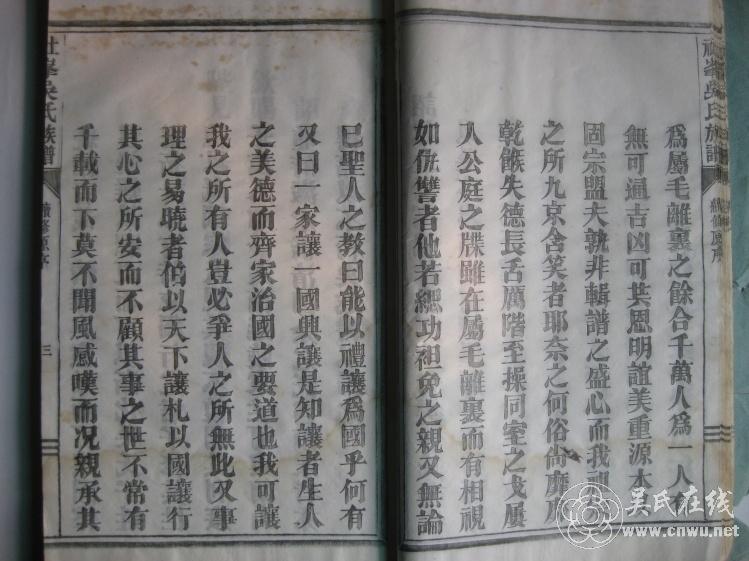 吳氏族譜
續修原序
為屬毛離裏之餘合千萬人為一人有
無可通吉凶可共恩明誼美重源木
固宗盟夫孰非輯譜之盛心而我
之所九京含笑者耶奈之何俗尚靡
乾餱失德長舌厲階至操同室之戈屢
入公庭之牒雖在屬毛離裏而有相視
如仇讐者他若緦功袒免之親又無論
已聖人之教曰能以禮讓為國乎何有
又曰一家讓一國興讓是知讓者生人
之美德而齊家治國之要道也我可讓
我之所有人豈必爭人之所無此又事
理之易曉者伯以天下讓札以國讓行
其心之所安而不顧其事之世不常有
千載而下莫不聞風感嘆而况親承其
社峯吳氏族譜
續修原序
三
吴氏在线
www.cnwu.net